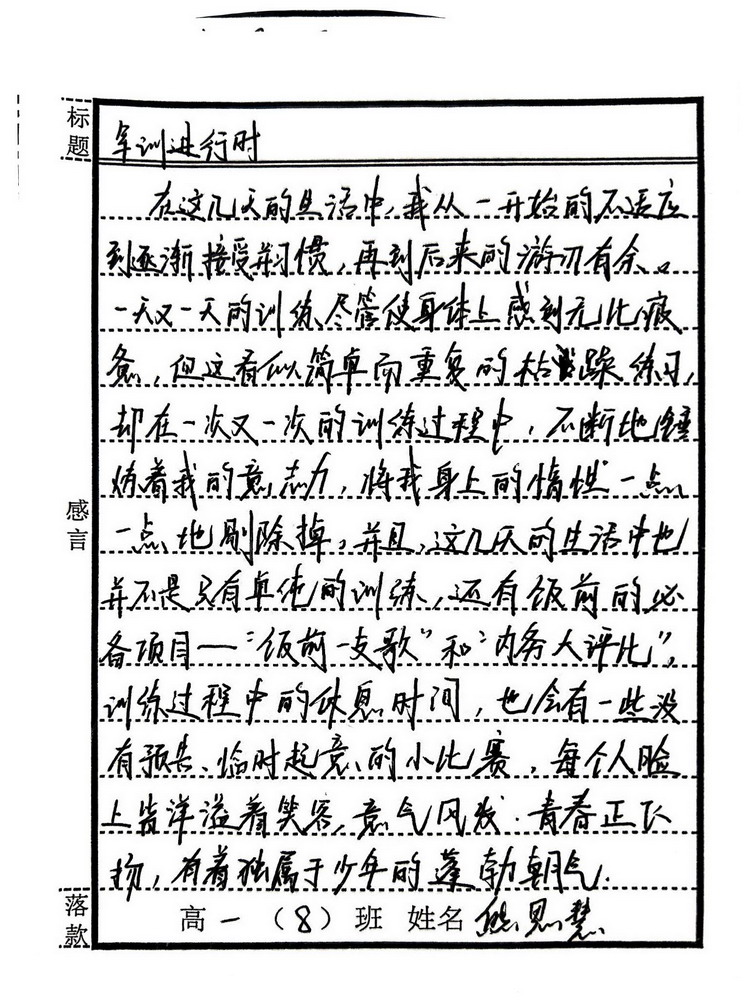 标题
军训进行时
在这几天的生活中,我从一开始的不适应
到逐渐接受并习惯,再到后来的游刃有余。
一天又一天的训练,尽管使身体上感到无比疲
惫,但这看似简单而重复的枯躁练习,
却在一次又一次的训练过程中,不断地锤
炼着我的意志力,将我身上的惰性一点
一点地剔除掉,并且,这几天的生活中也
并不是只有单纯的训练,还有饭前的必
备项目—“饭前一支歌”和“内务大评比”,
训练过程中的休息时间,也会有一些没
有预告、临时起意的小比赛,每个人脸
上皆洋溢着笑容,意气风发.青春正飞
扬,有着独属于少年的蓬勃朝气.
感言
落款
高一(8)班 姓名 熊思慧